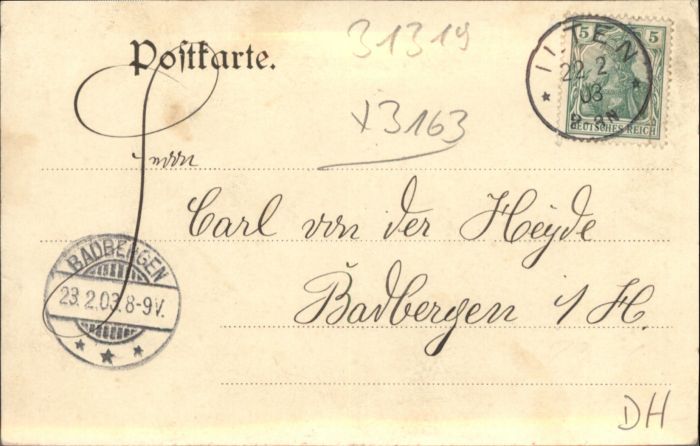 Postkarte.
31319
x3163
5 5
DEUTSCHES REICH
ILTEN
22 2
03
8-9N
Herrn
Carl von der Heyde
Badbergen i/H.
BADBERGEN
23.2.03.8-9V.
DH